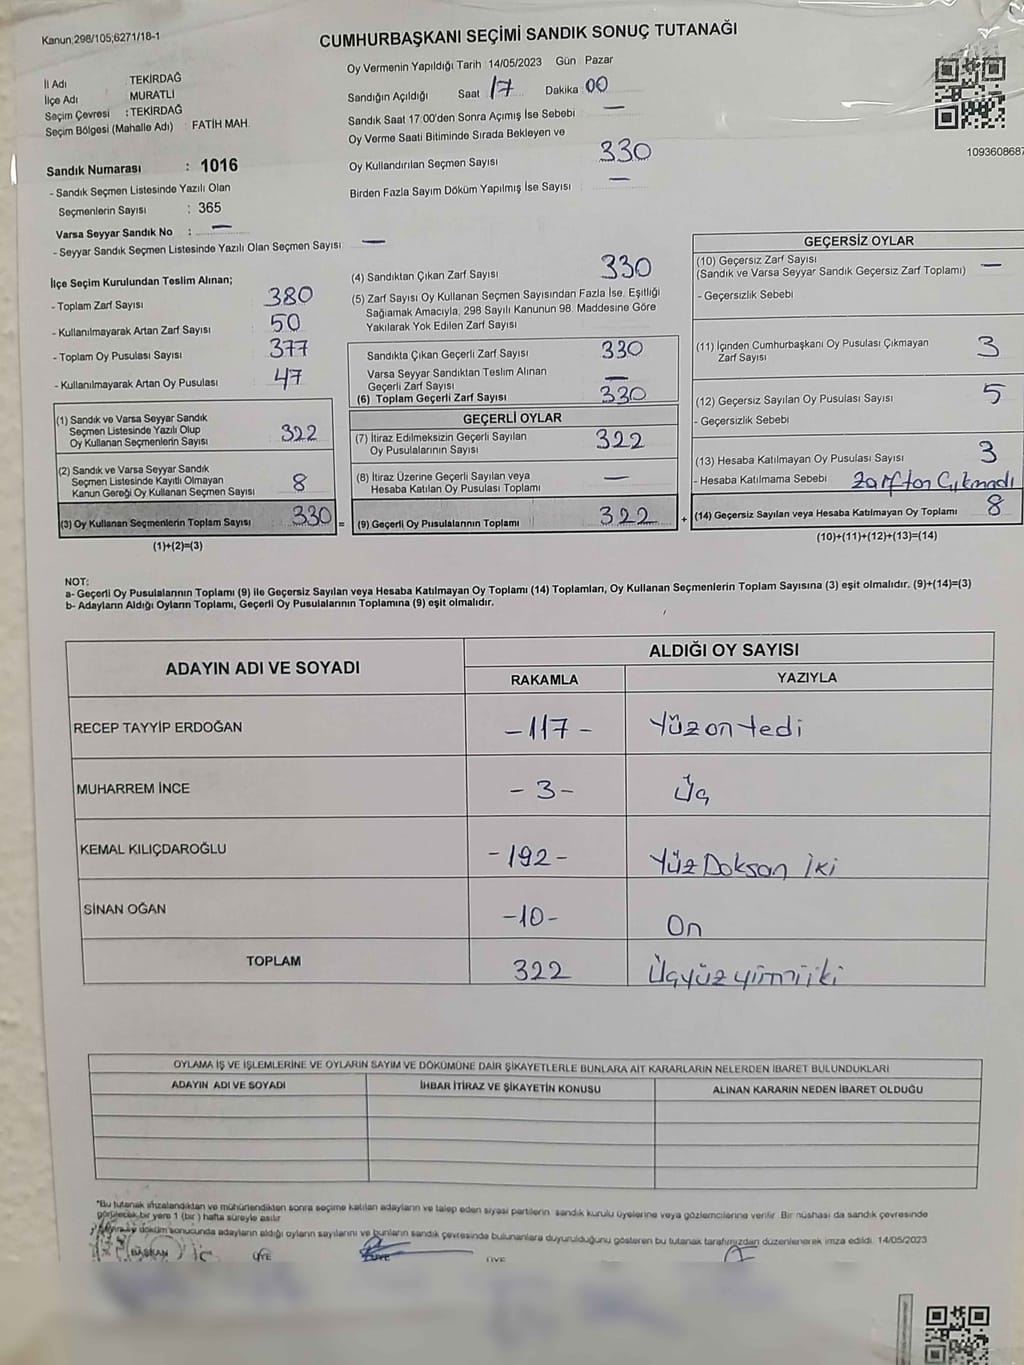 Kanun;298/105;6271/18-1
CUMHURBAŞKANI SEÇİMİ SANDIK SONUÇ TUTANAĞI
İl Adı TEKİRDAĞ
İlçe Adı MURATLI
Seçim Çevresi : TEKİRDAĞ
Seçim Bölgesi (Mahalle Adı) FATİH MAH.
Sandık Numarası : 1016
- Sandık Seçmen Listesinde Yazılı Olan
Seçmenlerin Sayısı : 365
Varsa Seyyar Sandık No : —
- Seyyar Sandık Seçmen Listesinde Yazılı Olan Seçmen Sayısı —
Oy Vermenin Yapıldığı Tarih 14/05/2023 Gün Pazar
Sandığın Açıldığı Saat 17 Dakika 00
Sandık Saat 17:00'den Sonra Açımış İse Sebebi —
Oy Verme Saati Bitiminde Sırada Bekleyen ve
Oy Kullandırılan Seçmen Sayısı 330
Birden Fazla Sayım Döküm Yapılmış İse Sayısı —
109360868
İlçe Seçim Kurulundan Teslim Alınan;
- Toplam Zarf Sayısı 380
- Kullanılmayarak Artan Zarf Sayısı 50
- Toplam Oy Pusulası Sayısı 377
- Kullanılmayarak Artan Oy Pusulası 47
(1) Sandık ve Varsa Seyyar Sandık
Seçmen Listesinde Yazılı Olup
Oy Kullanan Seçmenlerin Sayısı 322
(2) Sandık ve Varsa Seyyar Sandık
Seçmen Listesinde Kayıtlı Olmayan
Kanun Gereği Oy Kullanan Seçmen Sayısı 8
(3) Oy Kullanan Seçmenlerin Toplam Sayısı 330 =
(1)+(2)=(3)
(4) Sandıktan Çıkan Zarf Sayısı 330
(5) Zarf Sayısı Oy Kullanan Seçmen Sayısından Fazla İse, Eşitliği
Sağlamak Amacıyla, 298 Sayılı Kanunun 98. Maddesine Göre
Yakılarak Yok Edilen Zarf Sayısı
Sandıkta Çıkan Geçerli Zarf Sayısı 330
Varsa Seyyar Sandıktan Teslim Alınan
Geçerli Zarf Sayısı —
(6) Toplam Geçerli Zarf Sayısı 330
GEÇERLİ OYLAR
(7) İtiraz Edilmeksizin Geçerli Sayılan
Oy Pusulalarının Sayısı 322
(8) İtiraz Üzerine Geçerli Sayılan veya
Hesaba Katılan Oy Pusulası Toplamı —
(9) Geçerli Oy Pusulalarının Toplamı 322 +
GEÇERSİZ OYLAR
(10) Geçersiz Zarf Sayısı
(Sandık ve Varsa Seyyar Sandık Geçersiz Zarf Toplamı) —
- Geçersizlik Sebebi
(11) İçinden Cumhurbaşkanı Oy Pusulası Çıkmayan
Zarf Sayısı 3
(12) Geçersiz Sayılan Oy Pusulası Sayısı 5
- Geçersizlik Sebebi
(13) Hesaba Katılmayan Oy Pusulası Sayısı 3
- Hesaba Katılmama Sebebi Zarftan Çıkmadı
(14) Geçersiz Sayılan veya Hesaba Katılmayan Oy Toplamı 8
(10)+(11)+(12)+(13)=(14)
NOT:
a- Geçerli Oy Pusulalarının Toplamı (9) ile Geçersiz Sayılan veya Hesaba Katılmayan Oy Toplamı (14) Toplamları, Oy Kullanan Seçmenlerin Toplam Sayısına (3) eşit olmalıdır. (9)+(14)=(3)
b- Adayların Aldığı Oyların Toplamı, Geçerli Oy Pusulalarının Toplamına (9) eşit olmalıdır.
ADAYIN ADI VE SOYADI ALDIĞI OY SAYISI
RAKAMLA YAZIYLA
RECEP TAYYİP ERDOĞAN -117- Yüz on Yedi
MUHARREM İNCE -3- Üç
KEMAL KILIÇDAROĞLU -192- Yüz Doksan İki
SİNAN OĞAN -10- On
TOPLAM 322 Üçyüzyirmiiki
OYLAMA İŞ VE İŞLEMLERİNE VE OYLARIN SAYIM VE DÖKÜMÜNE DAİR ŞİKAYETLERLE BUNLARA AİT KARARLARIN NELERDEN İBARET BULUNDUKLARI
ADAYIN ADI VE SOYADI İHBAR İTİRAZ VE ŞİKAYETİN KONUSU ALINAN KARARIN NEDEN İBARET OLDUĞU
*Bu tutanak imzalandıktan ve mühürlendikten sonra seçime katılan adayların ve talep eden siyasi partilerin sandık kurulu üyelerine veya gözlemcilerine verilir. Bir nüshası da sandık çevresinde
görülecek bir yere 1 (bir) hafta süreyle asılır
döküm sonucunda adayların aldığı oyların sayılarını ve bunların sandık çevresinde bulunanlara duyurulduğunu gösteren bu tutanak tarafımızdan düzenlenerek imza edildi. 14/05/2023
BAŞKAN ÜYE ÜYE ÜYE